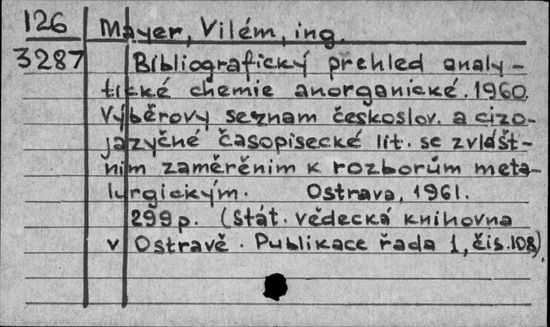 126 Mayer, Vilém, ing.
3287 Bibliografický přehled analy-
tické chemie anorganické. 1960.
Výběrový seznam českoslov. a cizo-
jazyčné časopisecké lit. se zvlášt-
ním zaměřěním k rozborům meta-
lurgickým. Ostrava, 1961.
299 p. (Stát. vědecká knihovna
v Ostravě. Publikace řada 1, čís. 108).